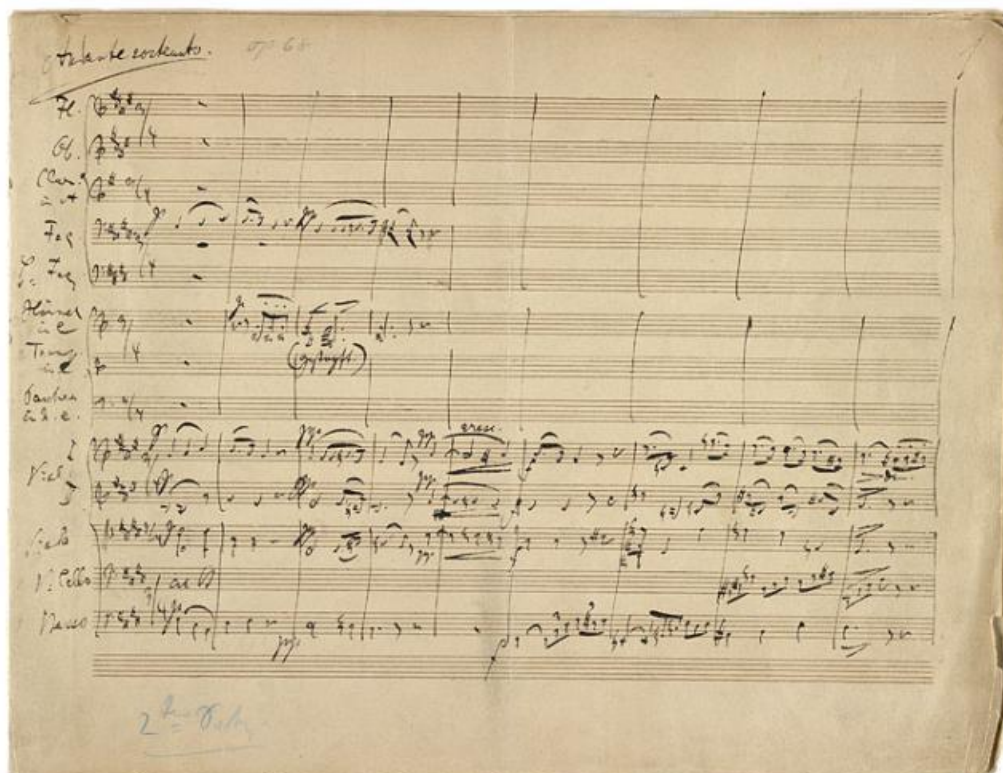 Andante sostenuto. op 68
Fl.
Ob.
Clar.
in A
Fag
C. Fag
Hörner
in E
Tromp
in E
Pauken
in
(gestopft.)
cresc.
I
Viol
II
Viola
V. Cello
Basso
pp
f
2